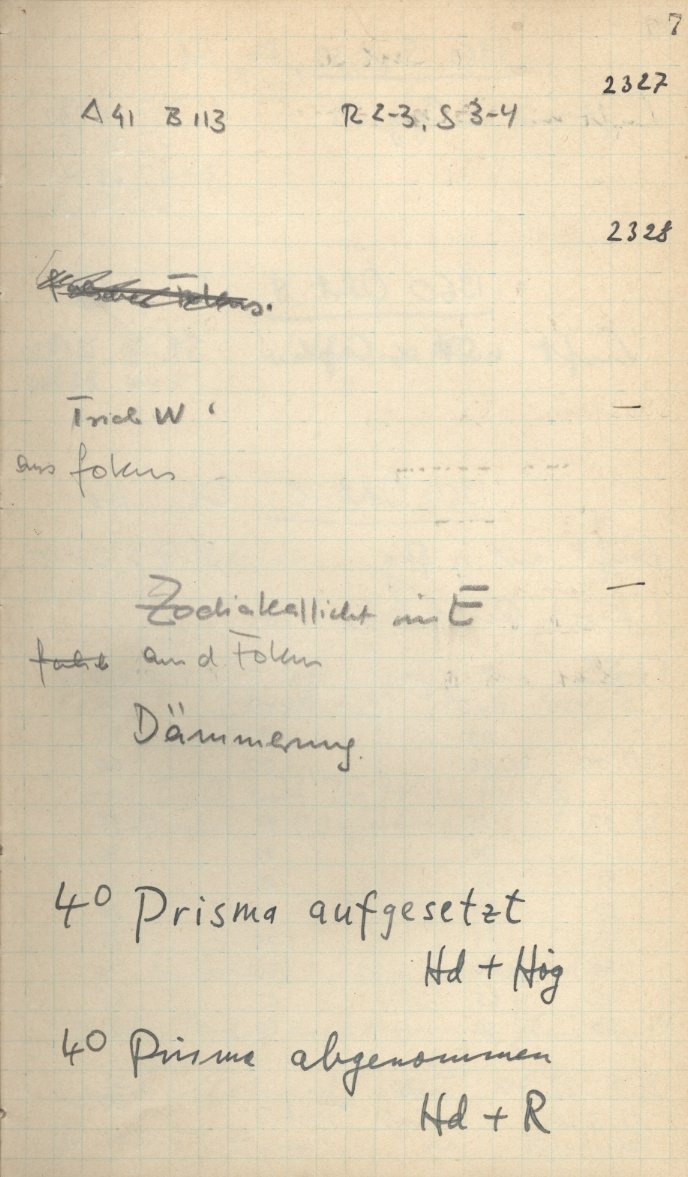 7
2327
A 41 B 113 R 2-3, S 3-4
2328
Fokus.
W
aus fokus
—
Zodiakallicht im E
—
aus d Fokus
Dämmerung.
4° Prisma aufgesetzt
Hd + Høg
4° Prisma abgenommen
Hd + R